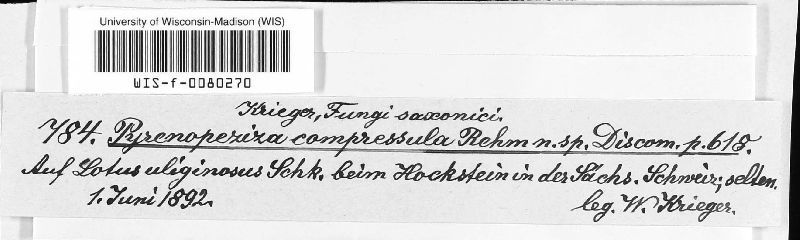 University of Wisconsin-Madison (WIS)
WIS-f-0080270
Krieger, Fungi saxonici.
784. Pyrenopeziza compressula Rehm n. sp. Discom. p. 618.
Auf Lotus uliginosus Schk. beim Hockstein in der Sächs. Schweiz; selten.
1. Juni 1892.
leg. W. Krieger.